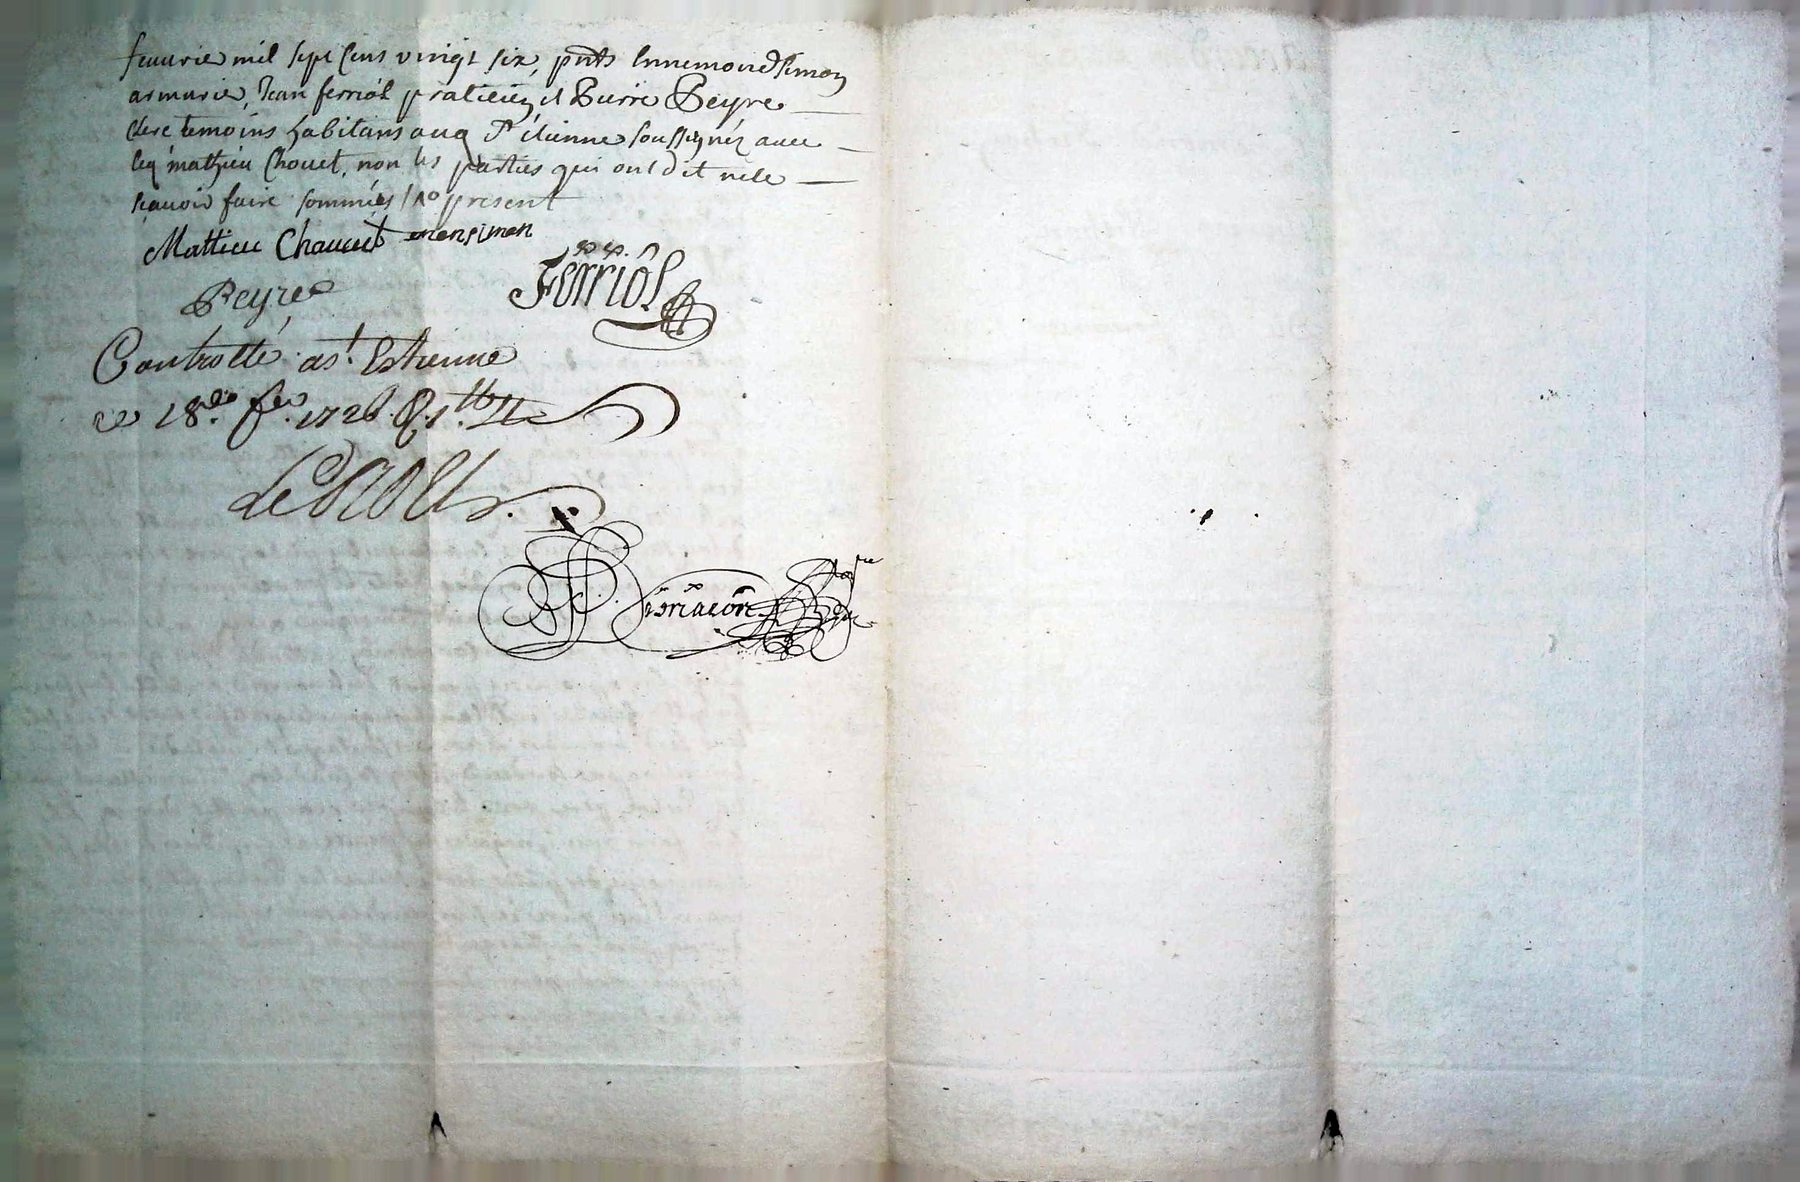 feuurier mil sept cens vingt six, pnts Ennemond Simon
armurier, Jean ferriol praticien et Pierre Peyre
clerc temoins habitans aud St étienne soussignéz auec
led mathieu Chouet, non les parties qui ont dit ne le
scauoir faire sommées / no present
Mattieu Chauuet enensimon
Peyre
Ferriol
Controllé a st. Estienne
Le 18. feu. 1726. R. 1 tt